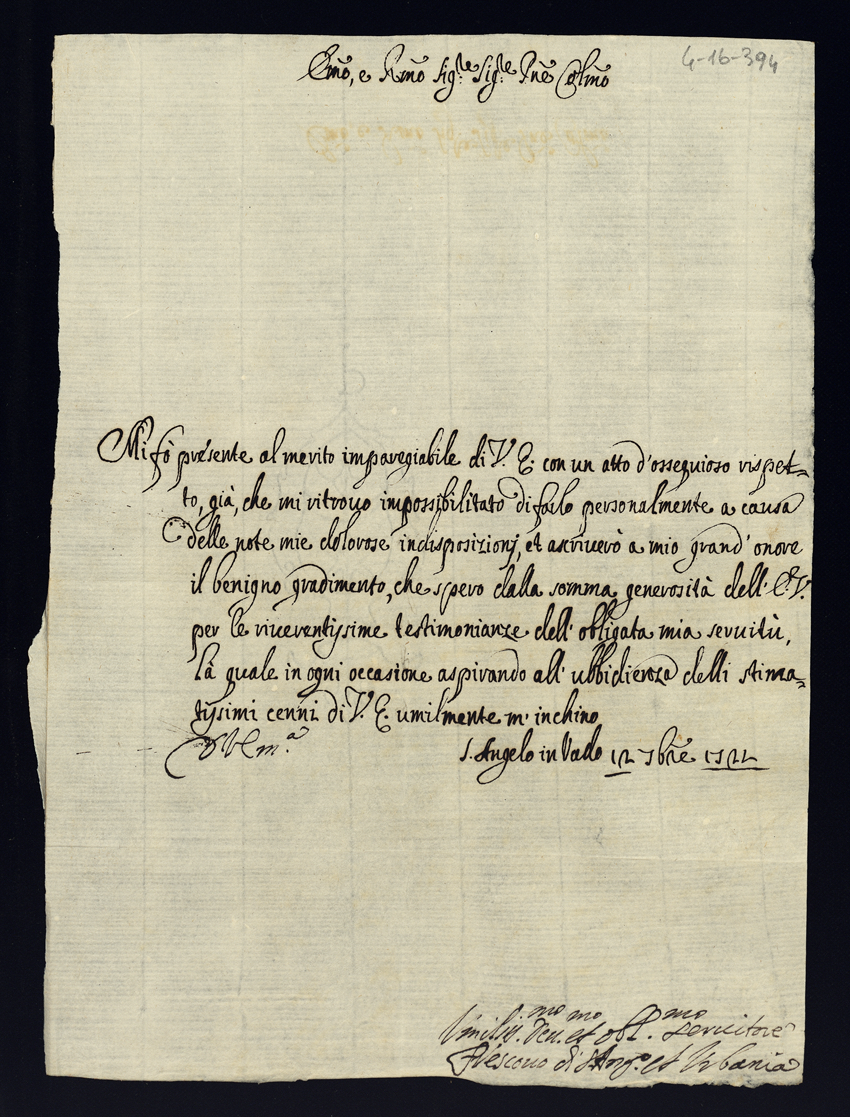 4-16-394
Emo, e Rmo Sig.re Sig.re Pne Colmo
Mi fò presente al merito imparegiabile di V. E. con un atto d'ossequioso rispet=
to, già, che mi ritrovo impossibilitato di farlo personalmente a causa
delle note mie dolorose indisposizioni, et ascriverò a mio grand' onore
il benigno gradimento, che spero dalla somma generosità dell' E. V.
per le riverentissime testimonianze dell' obligata mia servitù,
là quale in ogni occasione aspirando all' ubbidienza delli stima=
tissimi cenni di V. E. umilmente m' inchino
S. Angelo in Vado 12 7bre 1722
Umiliss.mo Dev.mo et obl.mo Servitore
Il Vescovo di S. Ang.o et Urbania